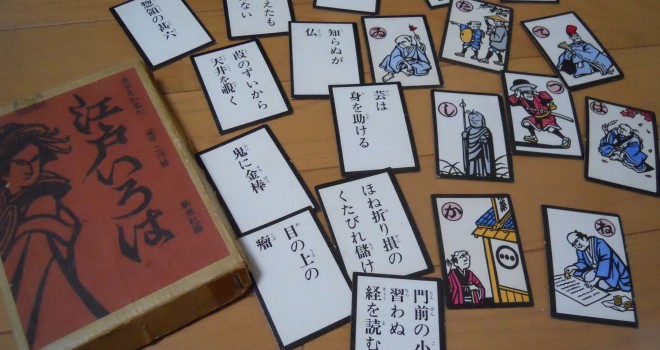 江戸いろは
惣領の甚六
えたも
ない
知らぬが
仏
葭のずいから
天井を覗く
芸は
身を助ける
鬼に金棒
目の上の
瘤
ほね折り損の
くたびれ儲け
門前の小
習わぬ
経を読む
ゐ
た
て
し
つ
は
か
ね